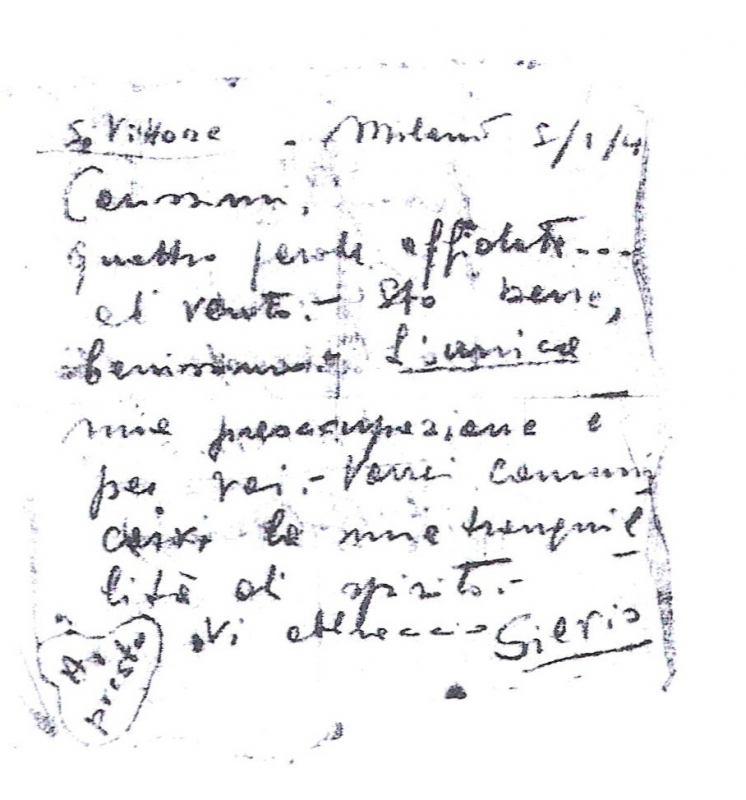 S. Vittore - Milano 5/1/4
Carissimi,
quattro parole affidate...
al vento. - Sto bene,
benissimo. L'unica
mia preoccupazione è
per voi. - Vorrei comuni
carvi la mia tranquil
lità di spirito. -
Vi abbraccio Silvio
A presto